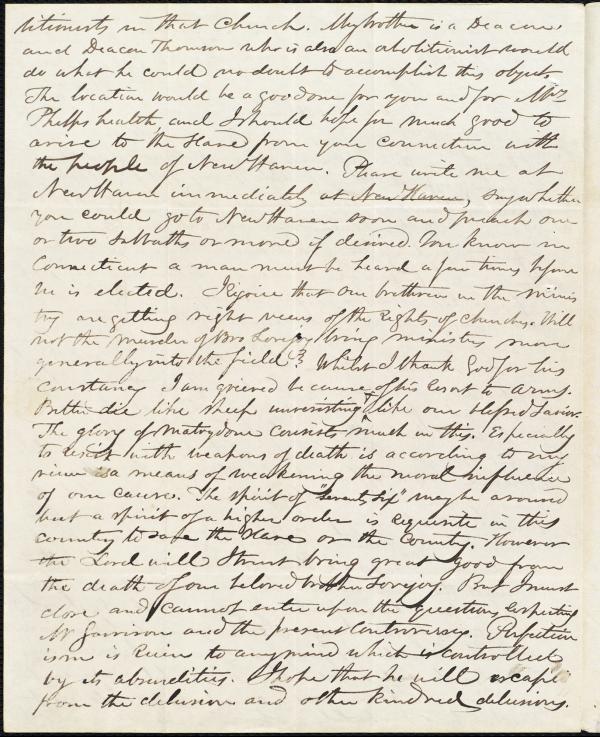 litionists in that Church. My brother is a Deacon,
and Deacon Thomson who is also an abolitionist would
do what he could no doubt to accomplish this object.
The location would be a good one for you and for Mrs
Phelps health and I should hope for much good to
arise to the slave from your connection with
the people of New Haven. Please write me at
New Haven immediately at New Haven, say whether
you could go to New Haven soon and preach one
or two Sabbaths or more if desired. You know in
Connecticut a man must be heard a few times before
he is elected. I rejoice that our brethren in the minis
try are getting right views of the rights of churches. Will
not the murder of Bro Lovejoy bring ministers more
generally into the field? Whilst I thank God for his
constancy I am grieved because of his resort to arms.
Better die like sheep unresisting like our blessed Savior.
The glory of Matrydom consists much in this. Especially
to resist with weapons of death is according to my
view is a means of weakening the moral influence
of our cause. The spirit of "seventy six" may be around
but a spirit of a higher order is requisite in this
country to save the slave or the country. However
the Lord will I trust bring great good from
the death of our beloved brother Lovejoy. But I must
close and cannot enter upon the questions respecting
Mr Garrison and the present controversy. Perfection
ism is ruin to any mind which is controlled
by its absurdities. I hope that he will escape
from the delusion and other kindred delusions.